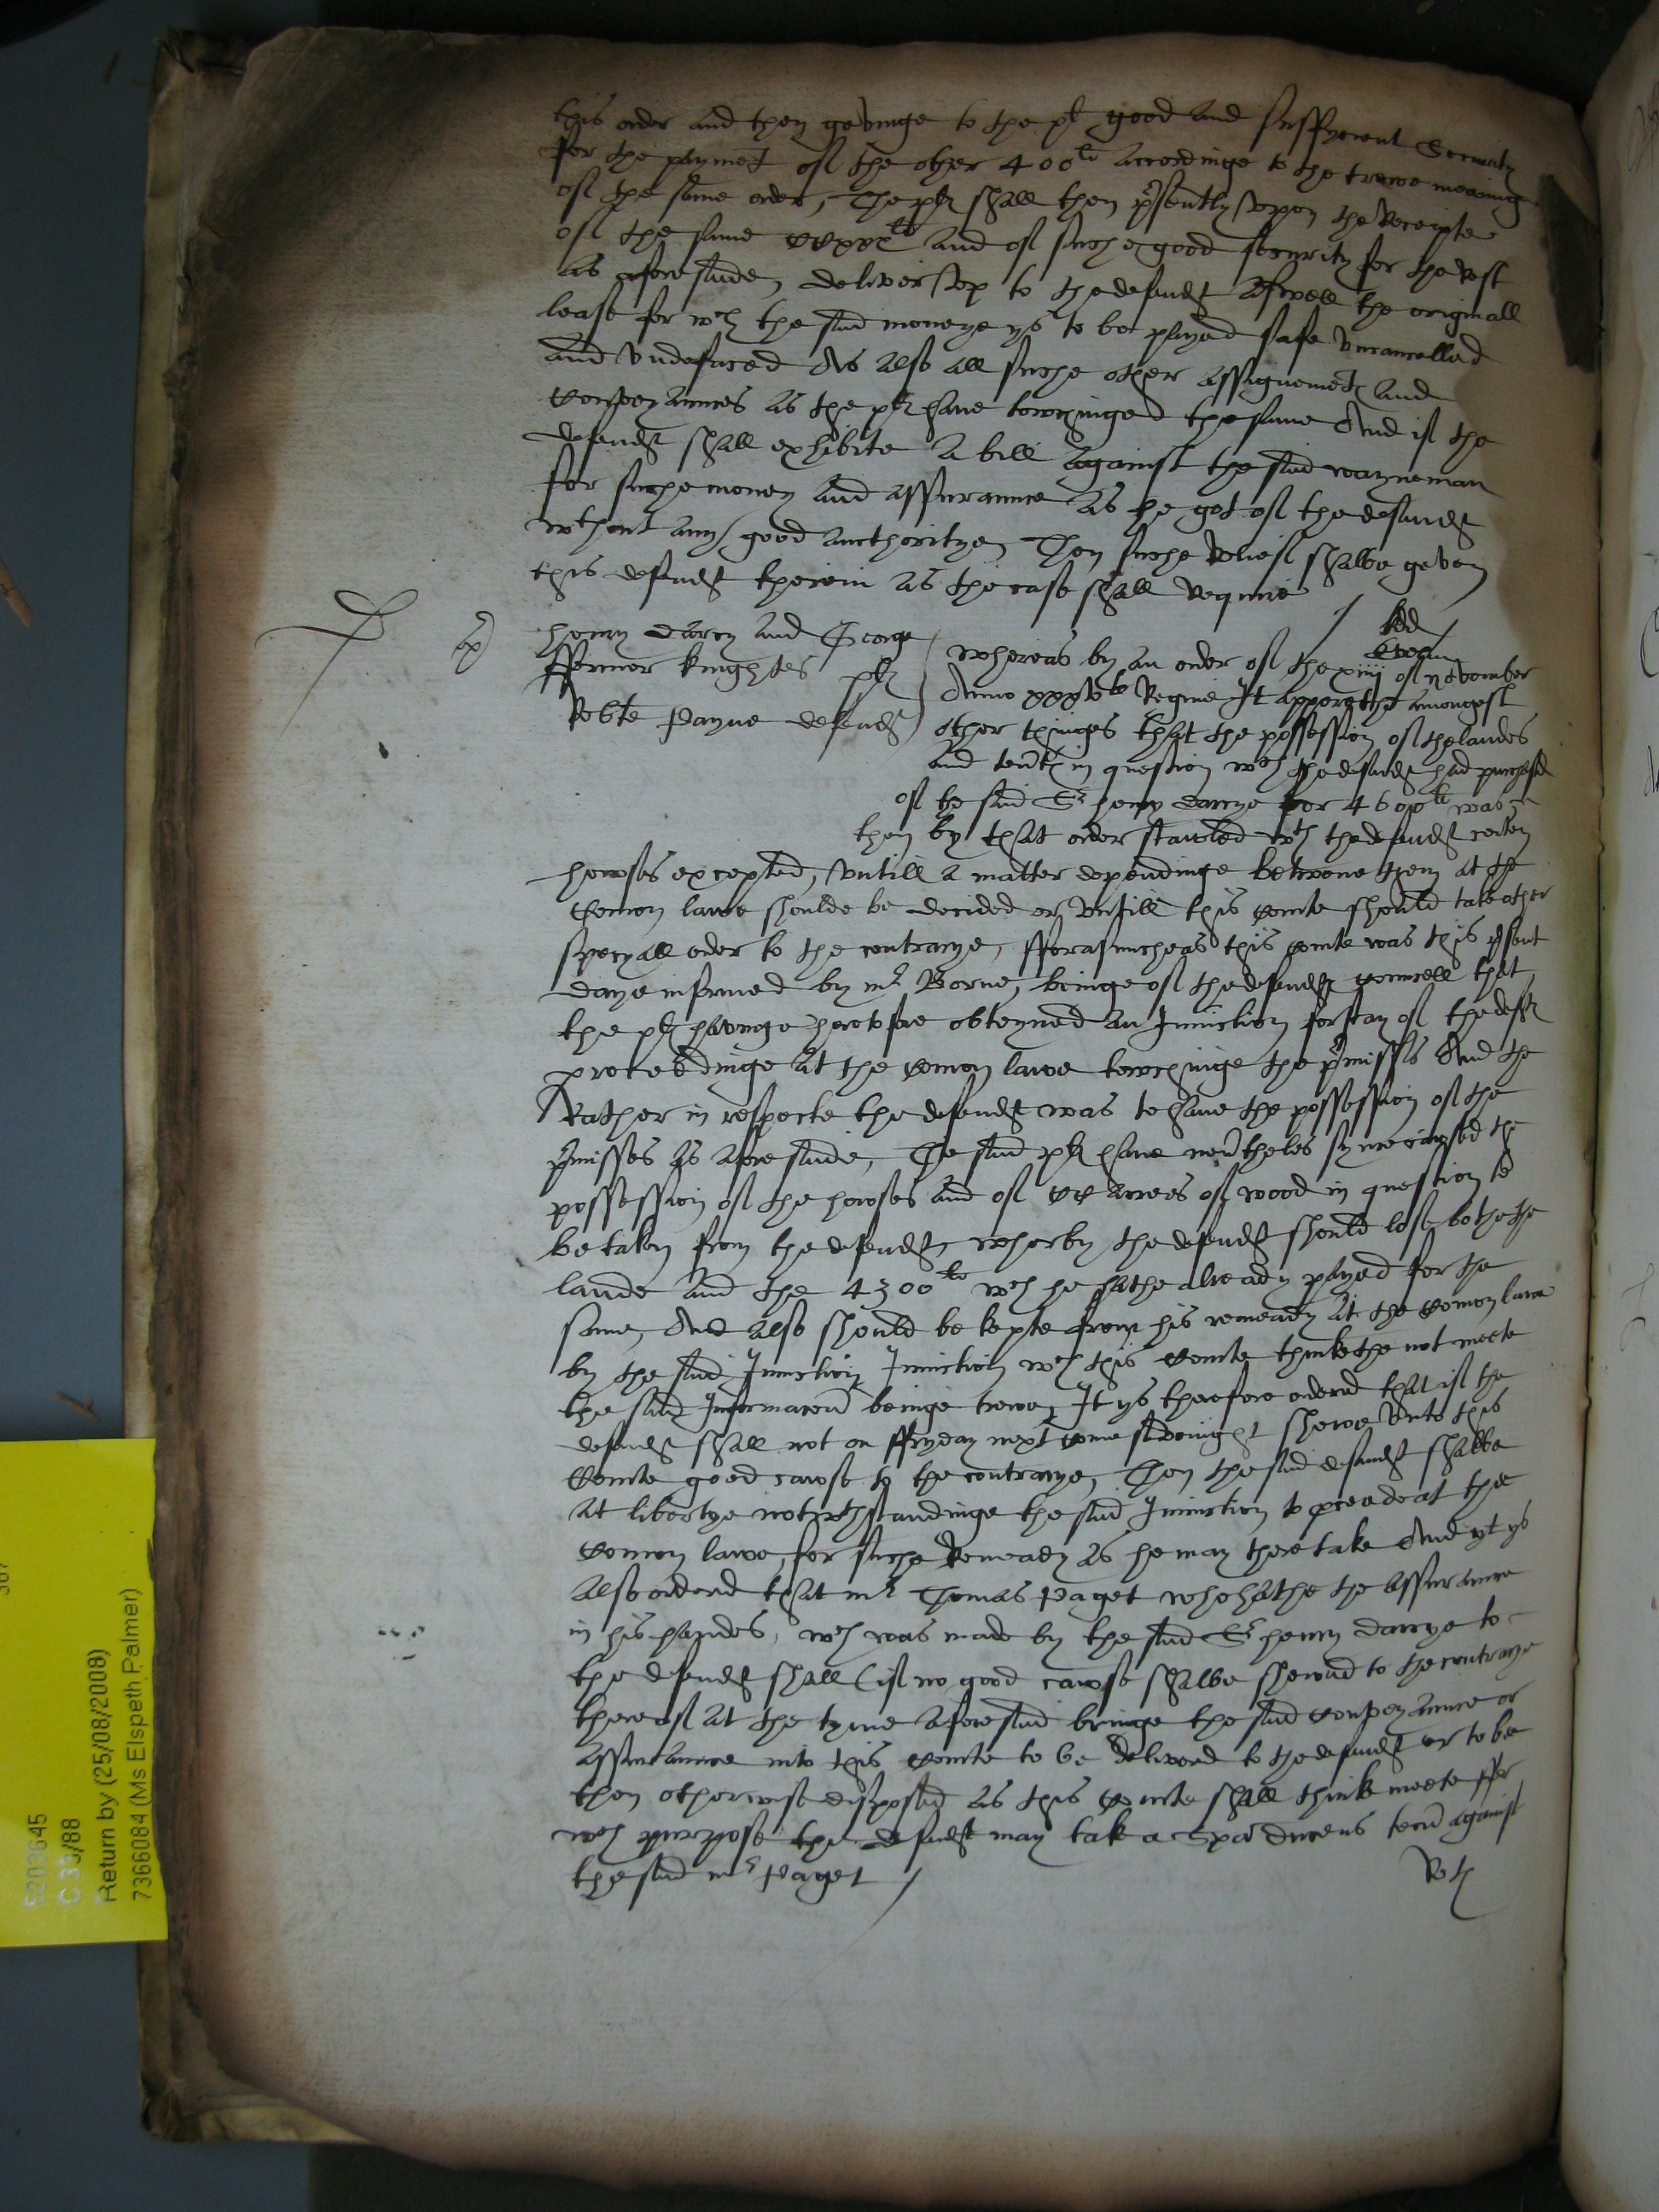 this order and then gevinge to the plt good and suffycient Security
for the paymet of the other 400li accordinge to the trewe meaninge
of the same order, The plts shall then psently upon the Receipte
of the same and of suche good security for the Rest
as aforesaide, deliver up to the defendt aswell the originall
lease for wch the said moneye ys to be payed safe uncancelled
and undefaced As also all suche other assignemets and
conveyances as the plts have towchinge the same And if the
defendt shall exhibite a bill against the said wayneman
for suche money and assurance as he got of the defendt
wthout any good aucthoritye, Then suche Relief shalbe geven
this defendt therein as the case shall Require
Henry Darcy and George
ffermor knightes plts
Robte Payne defendt
whereas by an order of the xiiij of November
Anno Regine It apperethe amongest
other thinges that the possession of the landes
and tents in question wch the defendt had purchased
of the said Sr Henry Darcye for 4600li was
then by that order stablished wth the defendt certen
howses excepted, untill a matter dependinge betwene them at the
Comon lawe shoulde be decided or untill this Courte should take other
specyall order to the contrarye, fforasmucheas this Courte was this psent
daye informed by mr Borne, beinge of the defendts councell that
the plts havinge heretofore obteyned an Iniunction for stay of the defts
procedinge at the Comon lawe towchinge the pmisses And the
Rather in respecte the defendt was to have the possession of the
pmisses as aforesaide, The said plts have nevtheles synce caused the
possession of the howses and of CC acres of wood in question to
be taken from the defendt, wherby the defendt should lose bothe the
lande and the 4300li wch he hathe already payed for the
same, And also should be kepte from his remeady at the Comon lawe
by the said Iniunction Iniunction wch this Courte thinkethe not meete
the said Informacon beinge trewe, It ys therefore ordered that if the
defendt shall not on ffryday next come sevenight shewe unto this
Courte good cawse to the contrarye, Then the said defendt shalbe
at libertye notwthstandinge the said Iniunction to procede at the
Comon lawe, for suche Remeady as he may there take And yt ys
also ordered that mr Thomas Paget who hathe the assurance
in his handes, wch was made by the said Sr Henry Darcye to
the defendt shall (if no good cawse shalbe shewed to the contrarye
thereof at the tyme aforesaid bringe the said conveyance or
assurance into this Courte to be delivered to the defendt or to be
then otherwise disposed as this Courte shall think meete ffor
wch purpose the defendt may take a Spa ducens tecu against
the said mr Paget
5203645
C 33/88
Return by (25/08/2008)
7366084 (Ms Elspeth Palmer)